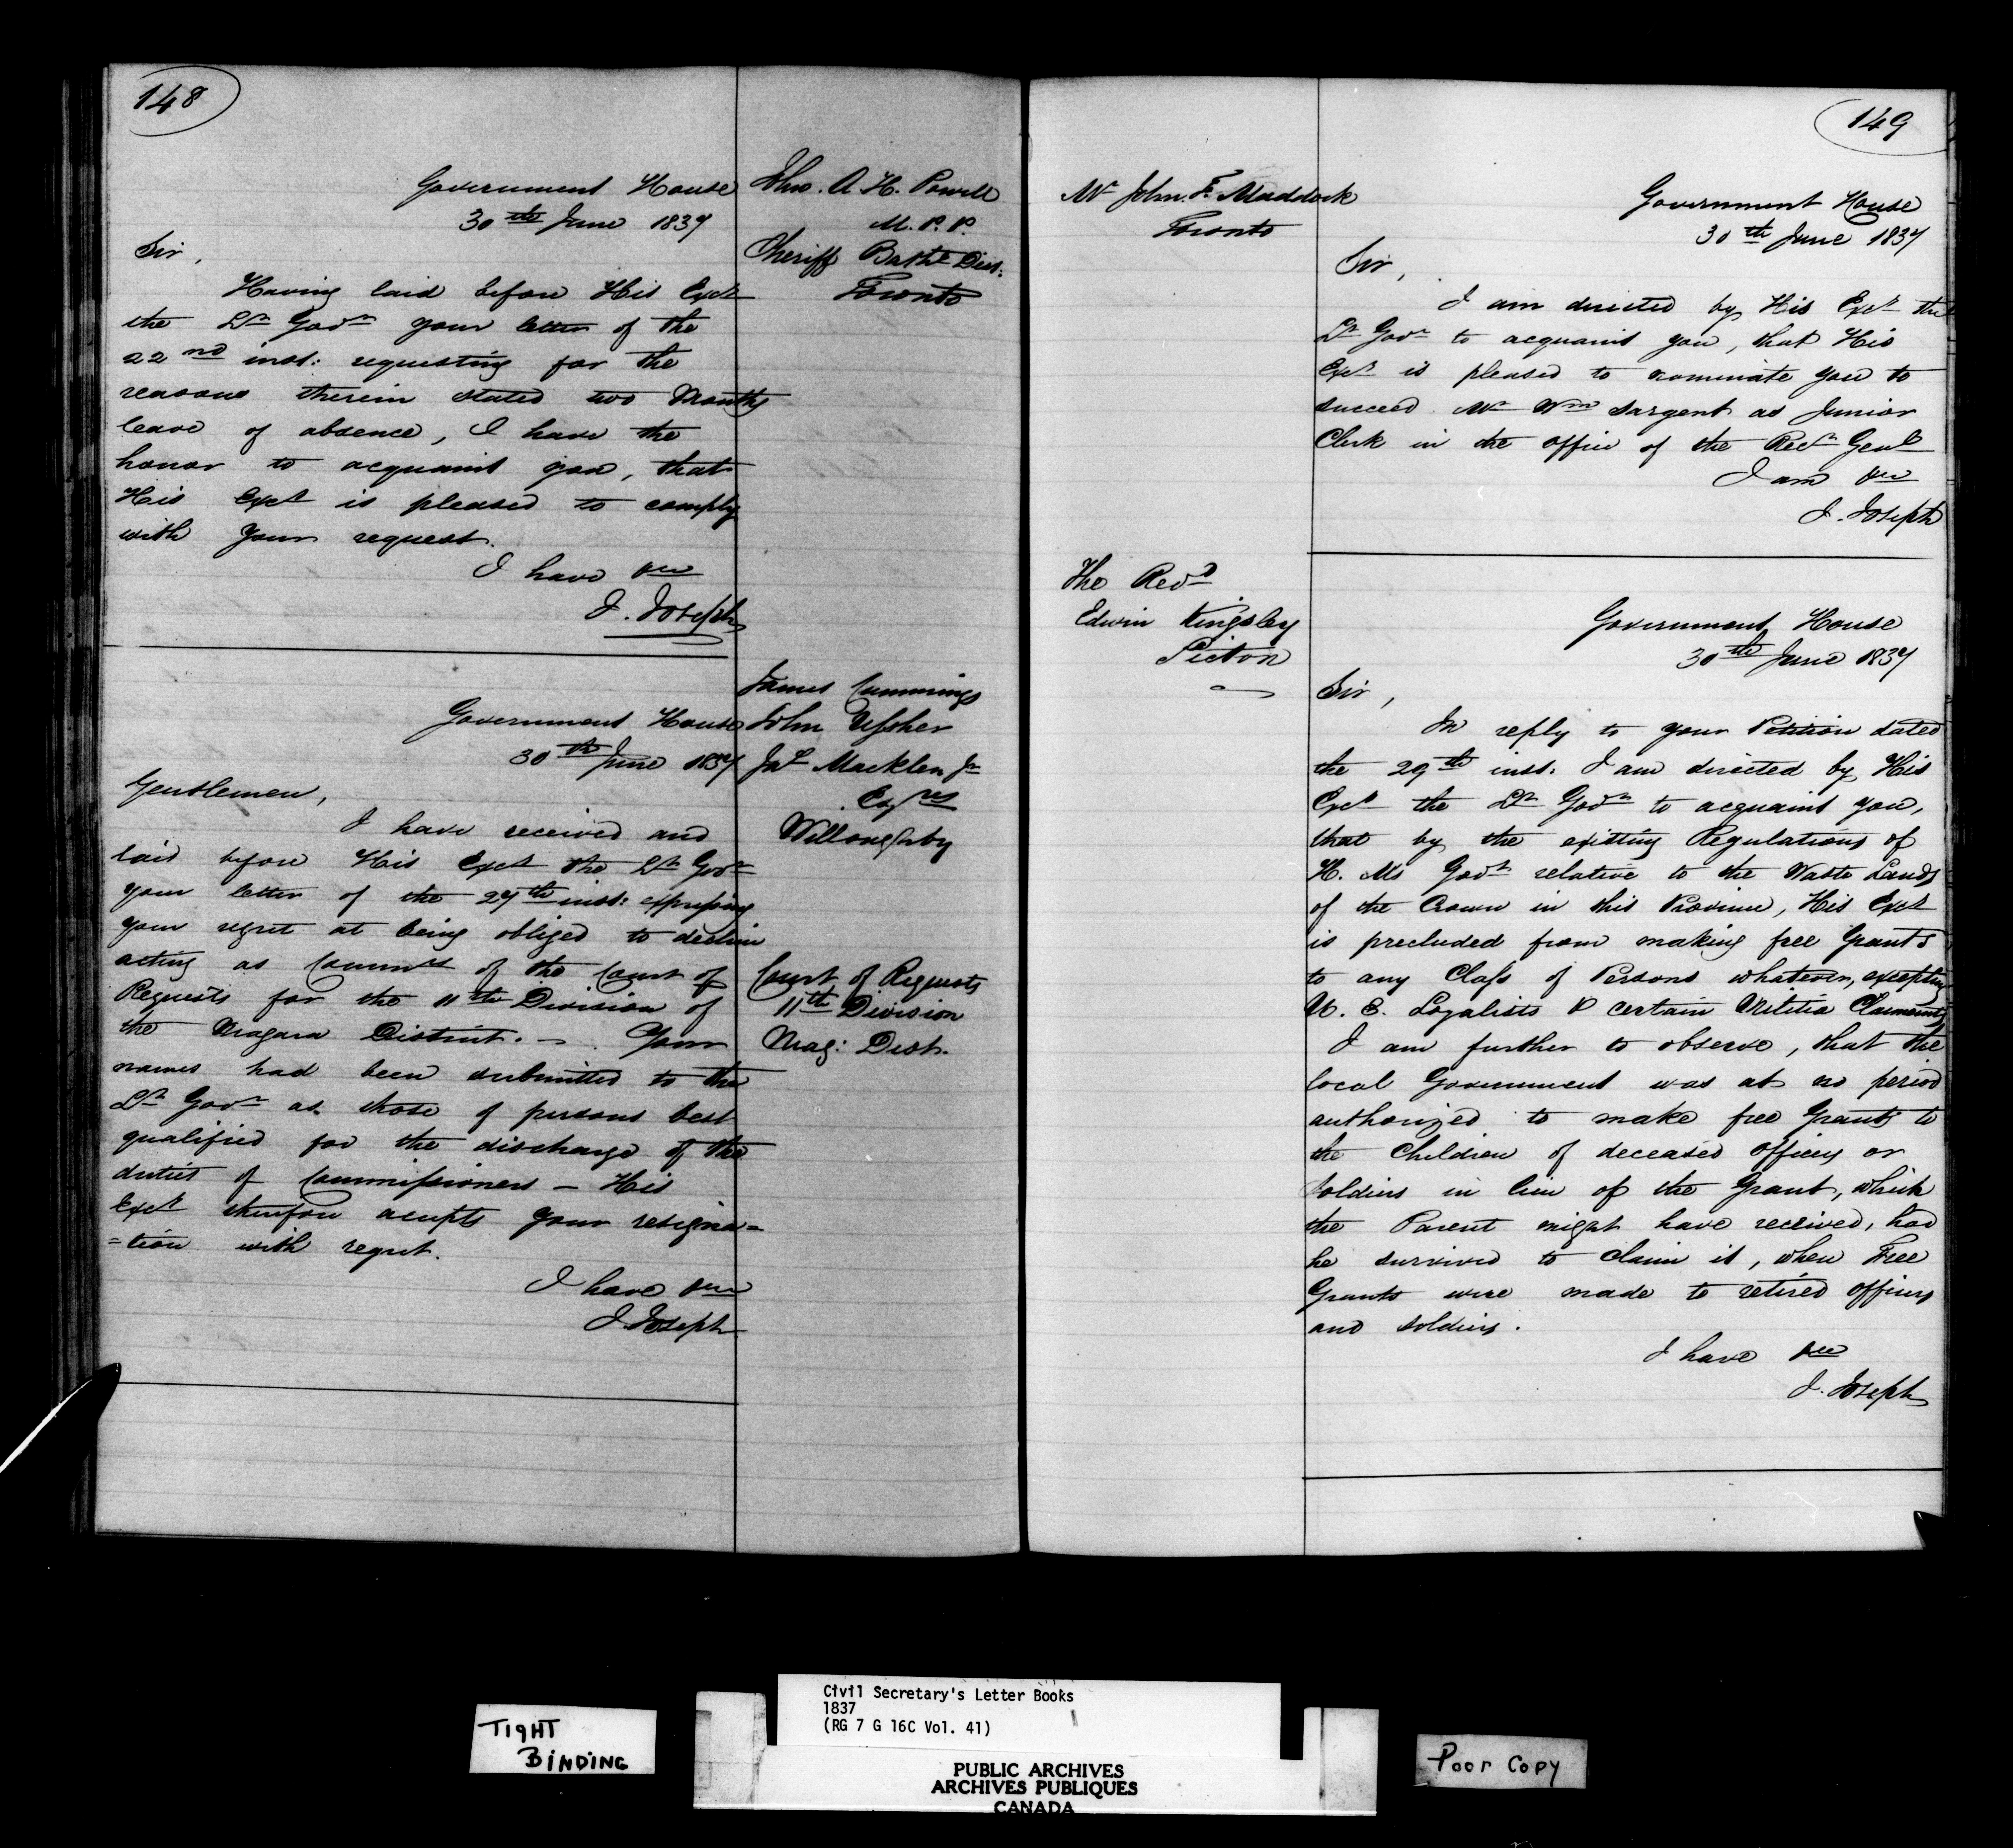 148
Government House
30th June 1837
Jno. A. H. Powell
M. P. P.
Sheriff Batht Dist:
Toronto
Sir,
Having laid before His Exct
the Lt Govr your letter of the
22nd inst: requesting for the
reasons therein stated two Months
leave of absence, I have the
honor to acquaint you, that
His Exct is pleased to comply
with your request.
I have &c
J. Joseph
James Cummings
John Ussher
Jas Macklem Jr
Esqres
Willoughby
Government House
30th June 1837
Gentlemen,
I have received and
laid before His Exct the Lt Govr
your letter of the 27th inst: expressing
your regret at being obliged to decline
acting as Commrs of the Court of
Requests for the 11th Division of
the Niagara District. – Your
names had been submitted to the
Lt Govr as those of persons best
qualified for the discharge of the
duties of Commissioners – His
Exct therefore accepts your resigna=
=tion with regret.
Court of Requests
11th Division
Niag: Dist.
I have &c
J. Joseph
149
Mr John. F. Maddock
Toronto
Government House
30th June 1837
Sir,
I am directed by His Exct the
Lt Govr to acquaint you, that His
Exct is pleased to nominate you to
succeed Mr Wm Sargent as Junior
Clerk in the office of the Recr Genl
I am &c
J. Joseph
The Revd
Edwin Kingsley
Picton
Government House
30th June 1837
Sir,
In reply to your Petition dated
the 29th inst: I am directed by His
Exct the Lt Govr to acquaint you,
that by the existing Regulations of
H. Ms Govt relative to the Waste Lands
of the Crown in this Province, His Exct
is precluded from making free Grants
to any Class of Persons whatever, excepting
U. E. Loyalists & certain Militia Claimants
I am further to observe, that the
local Government was at no period
authorized to make free Grants to
the Children of deceased officers or
soldiers in lieu of the Grant, which
the Parent might have received, had
he survived to claim it, when Free
Grants were made to retired officers
and soldiers.
I have &c
J. Joseph
TIGHT
BINDING
Civil Secretary's Letter Books
1837
(RG 7 G 16C Vol. 41)
PUBLIC ARCHIVES
ARCHIVES PUBLIQUES
CANADA
Poor Copy